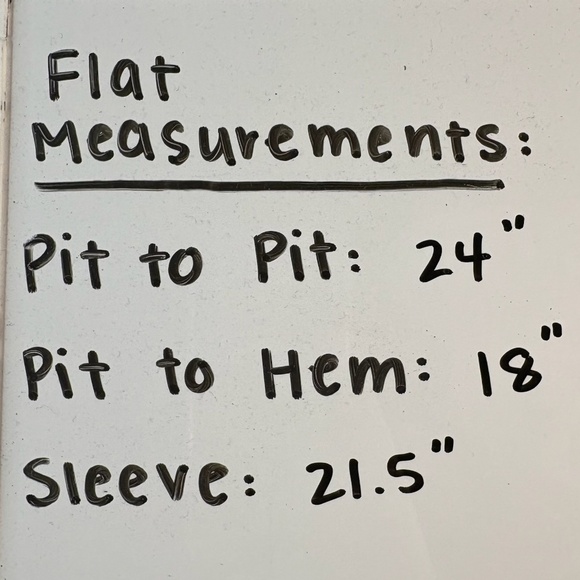 Flat
Measurements:
Pit to Pit: 24"
Pit to Hem: 18"
Sleeve: 21.5"